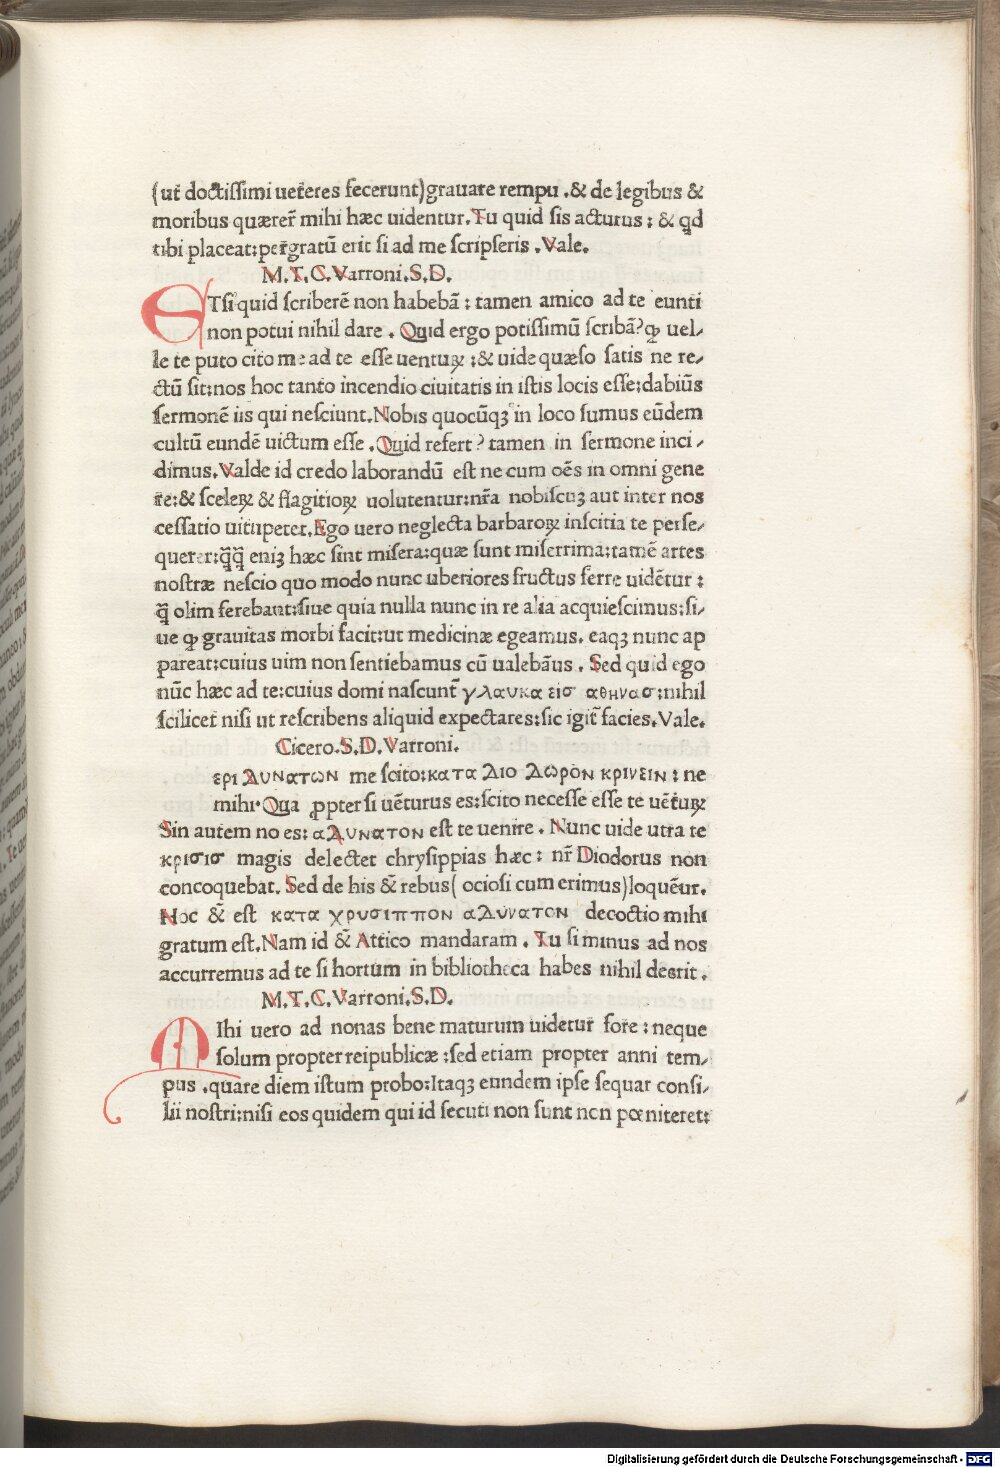 (ut̄ doctissimi uet̄eres fecerunt)grauare rempu .& de legibus &
moribus quærer̄ mihi hæc uidentur.Tu quid sis acturus: & qd̄
tibi placeat:per̄gratū erit si ad me scripseris .Vale.
M.T.C.Varroni.S.D.
ETsi quid scriberē non habebā: tamen amico ad te eunti
non potui nihil dare . Quid ergo potissimū scribā?ꝙ uel-
le te puto cito me ad te esse uentuꝝ :& uide quæso satis ne re-
ctū sit:nos hoc tanto incendio ciuitatis in istis locis esse:dabiūs
sermonē iis qui nesciunt.Nobis quocūqꝫ in loco sumus eūdem
cultū eundē uictum esse .Quid refert? tamen in sermone inci-
dimus.Valde id credo laborandū est ne cum oēs in omni gene
re:& sceleꝝ & flagitioꝝ uolutentur:nr̄a nobiscuꝫ aut inter nos
cessatio uitupetet.Ego uero neglecta barbaroꝝ inscitia te perse-
querer:q̄q̄ eniꝫ hæc sint misera:quæ sunt miserrima:tamē artes
nostræ nescio quo modo nunc uberiores fructus ferre uidētur :
q̄ olim ferebant:siue quia nulla nunc in re alia acquiescimus:si-
ue ꝙ grauitas morbi facit:ut medicinæ egeamus. eaqꝫ nunc ap
pareat:cuius uim non sentiebamus cū ualebāus . Sed quid ego
nūc hæc ad te:cuius domi nascunt̄ γλαυκα εισ αθηνασ:nihil
scilicet nisi ut rescribens aliquid expectares:sic igit̄ facies.Vale.
Cicero.S.D.Varroni.
ερι Δυνατων me scito:κατα Διο Δωρον κρινειν : ne
mihi Qua ꝓpter si uēturus es:scito necesse esse te uēt̄uꝝ
Sin autem no es: αΔυνατον est te uenire . Nunc uide utra te
κρισισ magis delectet chrysippias hæc: nr̄ Diodorus non
concoquebat. Sed de his &̄ rebus( ociosi cum erimus)loquēur.
Noc &̄ est κατα χρυσιππον αΔυνατον decoctio mihi
gratum est.Nam id &̄ Attico mandaram . Tu si minus ad nos
accurremus ad te si hortum in bibliotheca habes nihil deerit .
M.T.C.Varroni.S.D.
MIhi uero ad nonas bene maturum uidetur fore : neque
solum propter reipublicæ :sed etiam propter anni tem-
pus .quare diem istum probo:Itaqꝫ eundem ipse sequar consi-
lii nostri:nisi eos quidem qui id secuti non sunt non pœniteret:
Digitalisierung gefördert durch die Deutsche Forschungsgemeinschaft - DFG